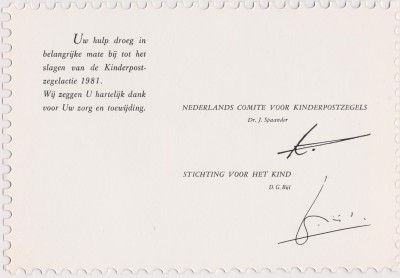 Uw hulp droeg in
belangrijke mate bij tot het
slagen van de Kinderpost-
zegelactie 1981.
Wij zeggen U hartelijk dank
voor Uw zorg en toewijding.
NEDERLANDS COMITE VOOR KINDERPOSTZEGELS
Dr. J. Spaander
STICHTING VOOR HET KIND
D. G. Bijl